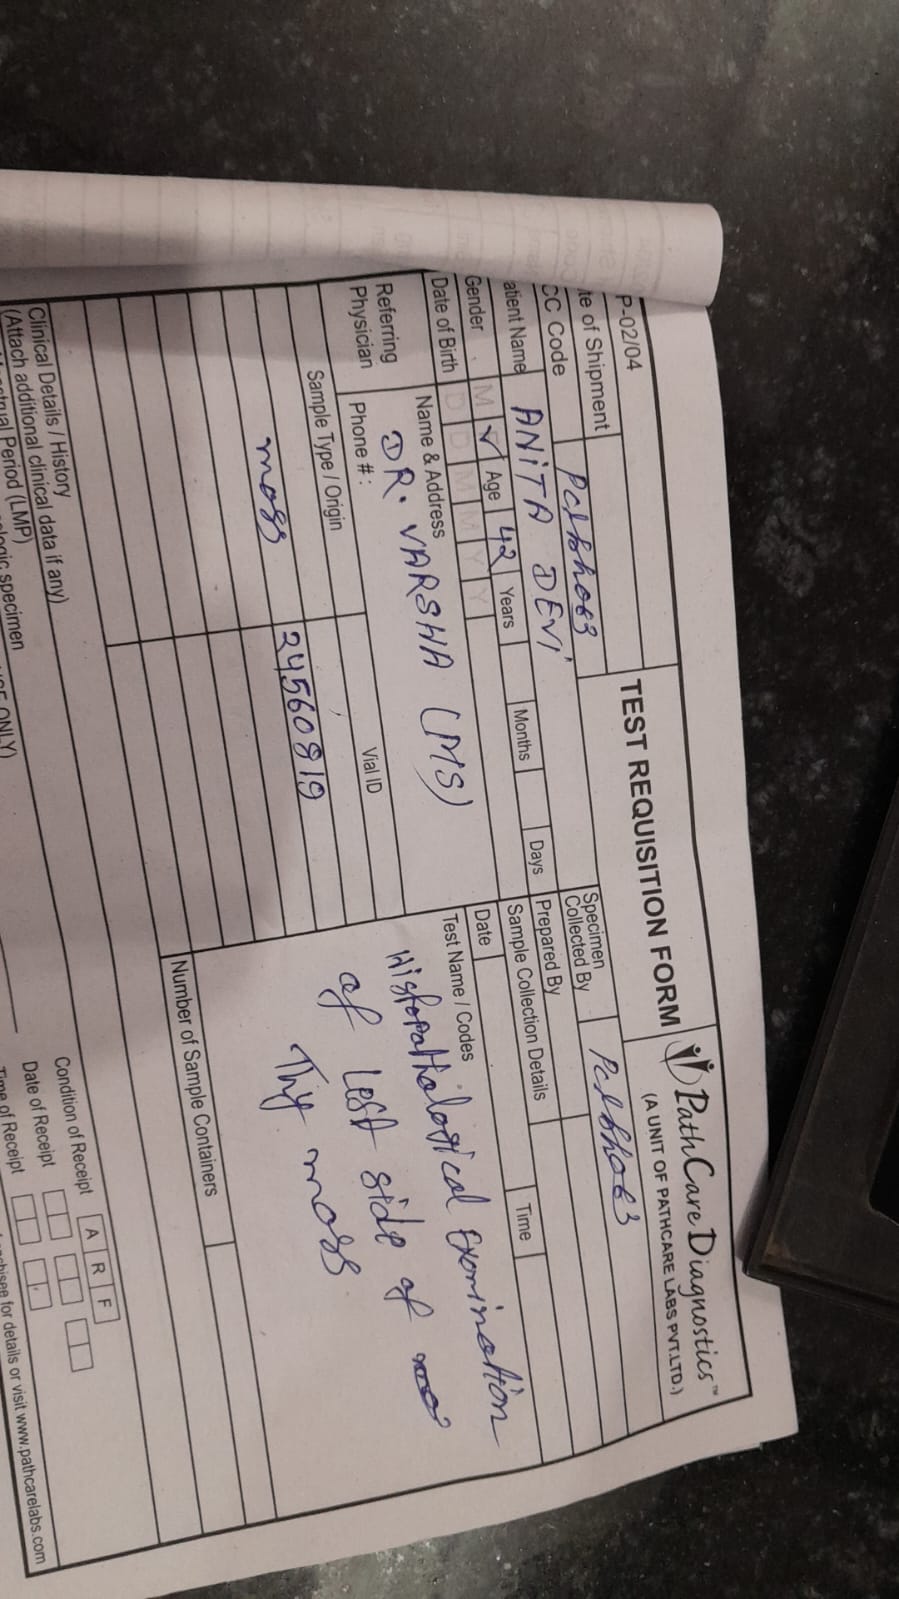 P-02/04
TEST REQUISITION FORM
PathCare Diagnostics™
(A UNIT OF PATHCARE LABS PVT.LTD.)
te of Shipment
CC Code Pclbho63
Specimen Collected By Pclbho63
atient Name ANiTA DEVI
Prepared By
Gender M ✓ Age 42 Years Months Days
Sample Collection Details
Date of Birth D D M M Y Y
Date Time
Referring Physician
Name & Address
DR. VARSHA (MS)
Phone #:
Test Name / Codes
Histopathological Examination
of Left side of
Thy mass
Sample Type / Origin Vial ID
mass 24560819
Number of Sample Containers
Clinical Details / History
(Attach additional clinical data if any)
Condition of Receipt A R F
Date of Receipt
Time of Receipt
strual Period (LMP)
ologic specimen
ONLY)
for details or visit www.pathcarelabs.com